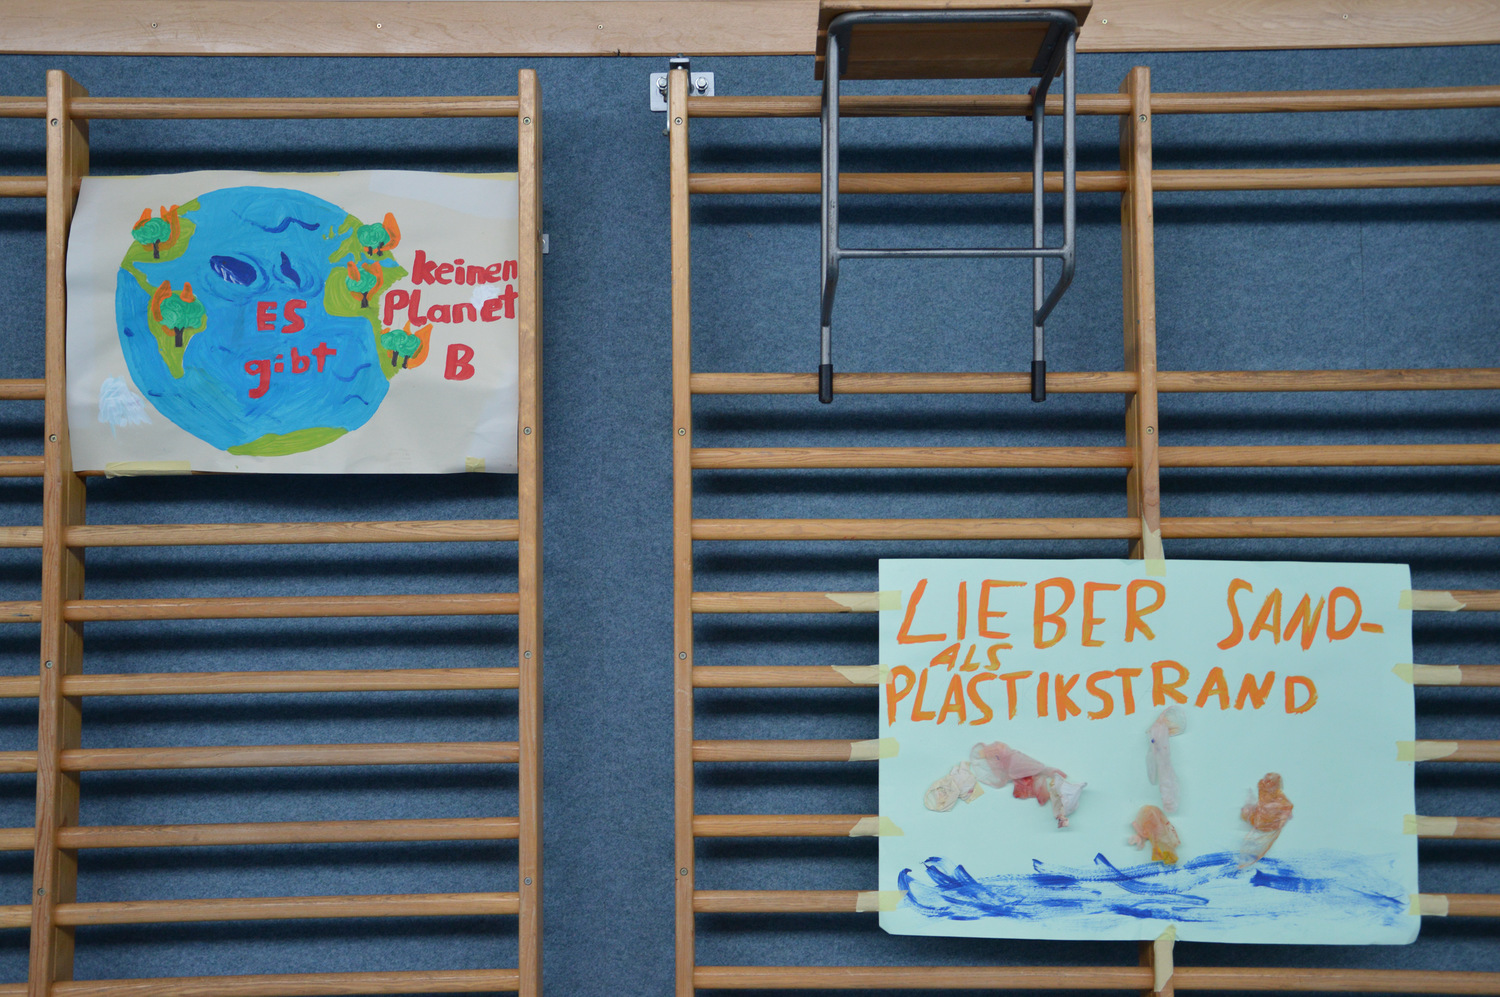 ES
gibt
keinen
Planet
B
LIEBER SAND-
ALS
PLASTIKSTRAND